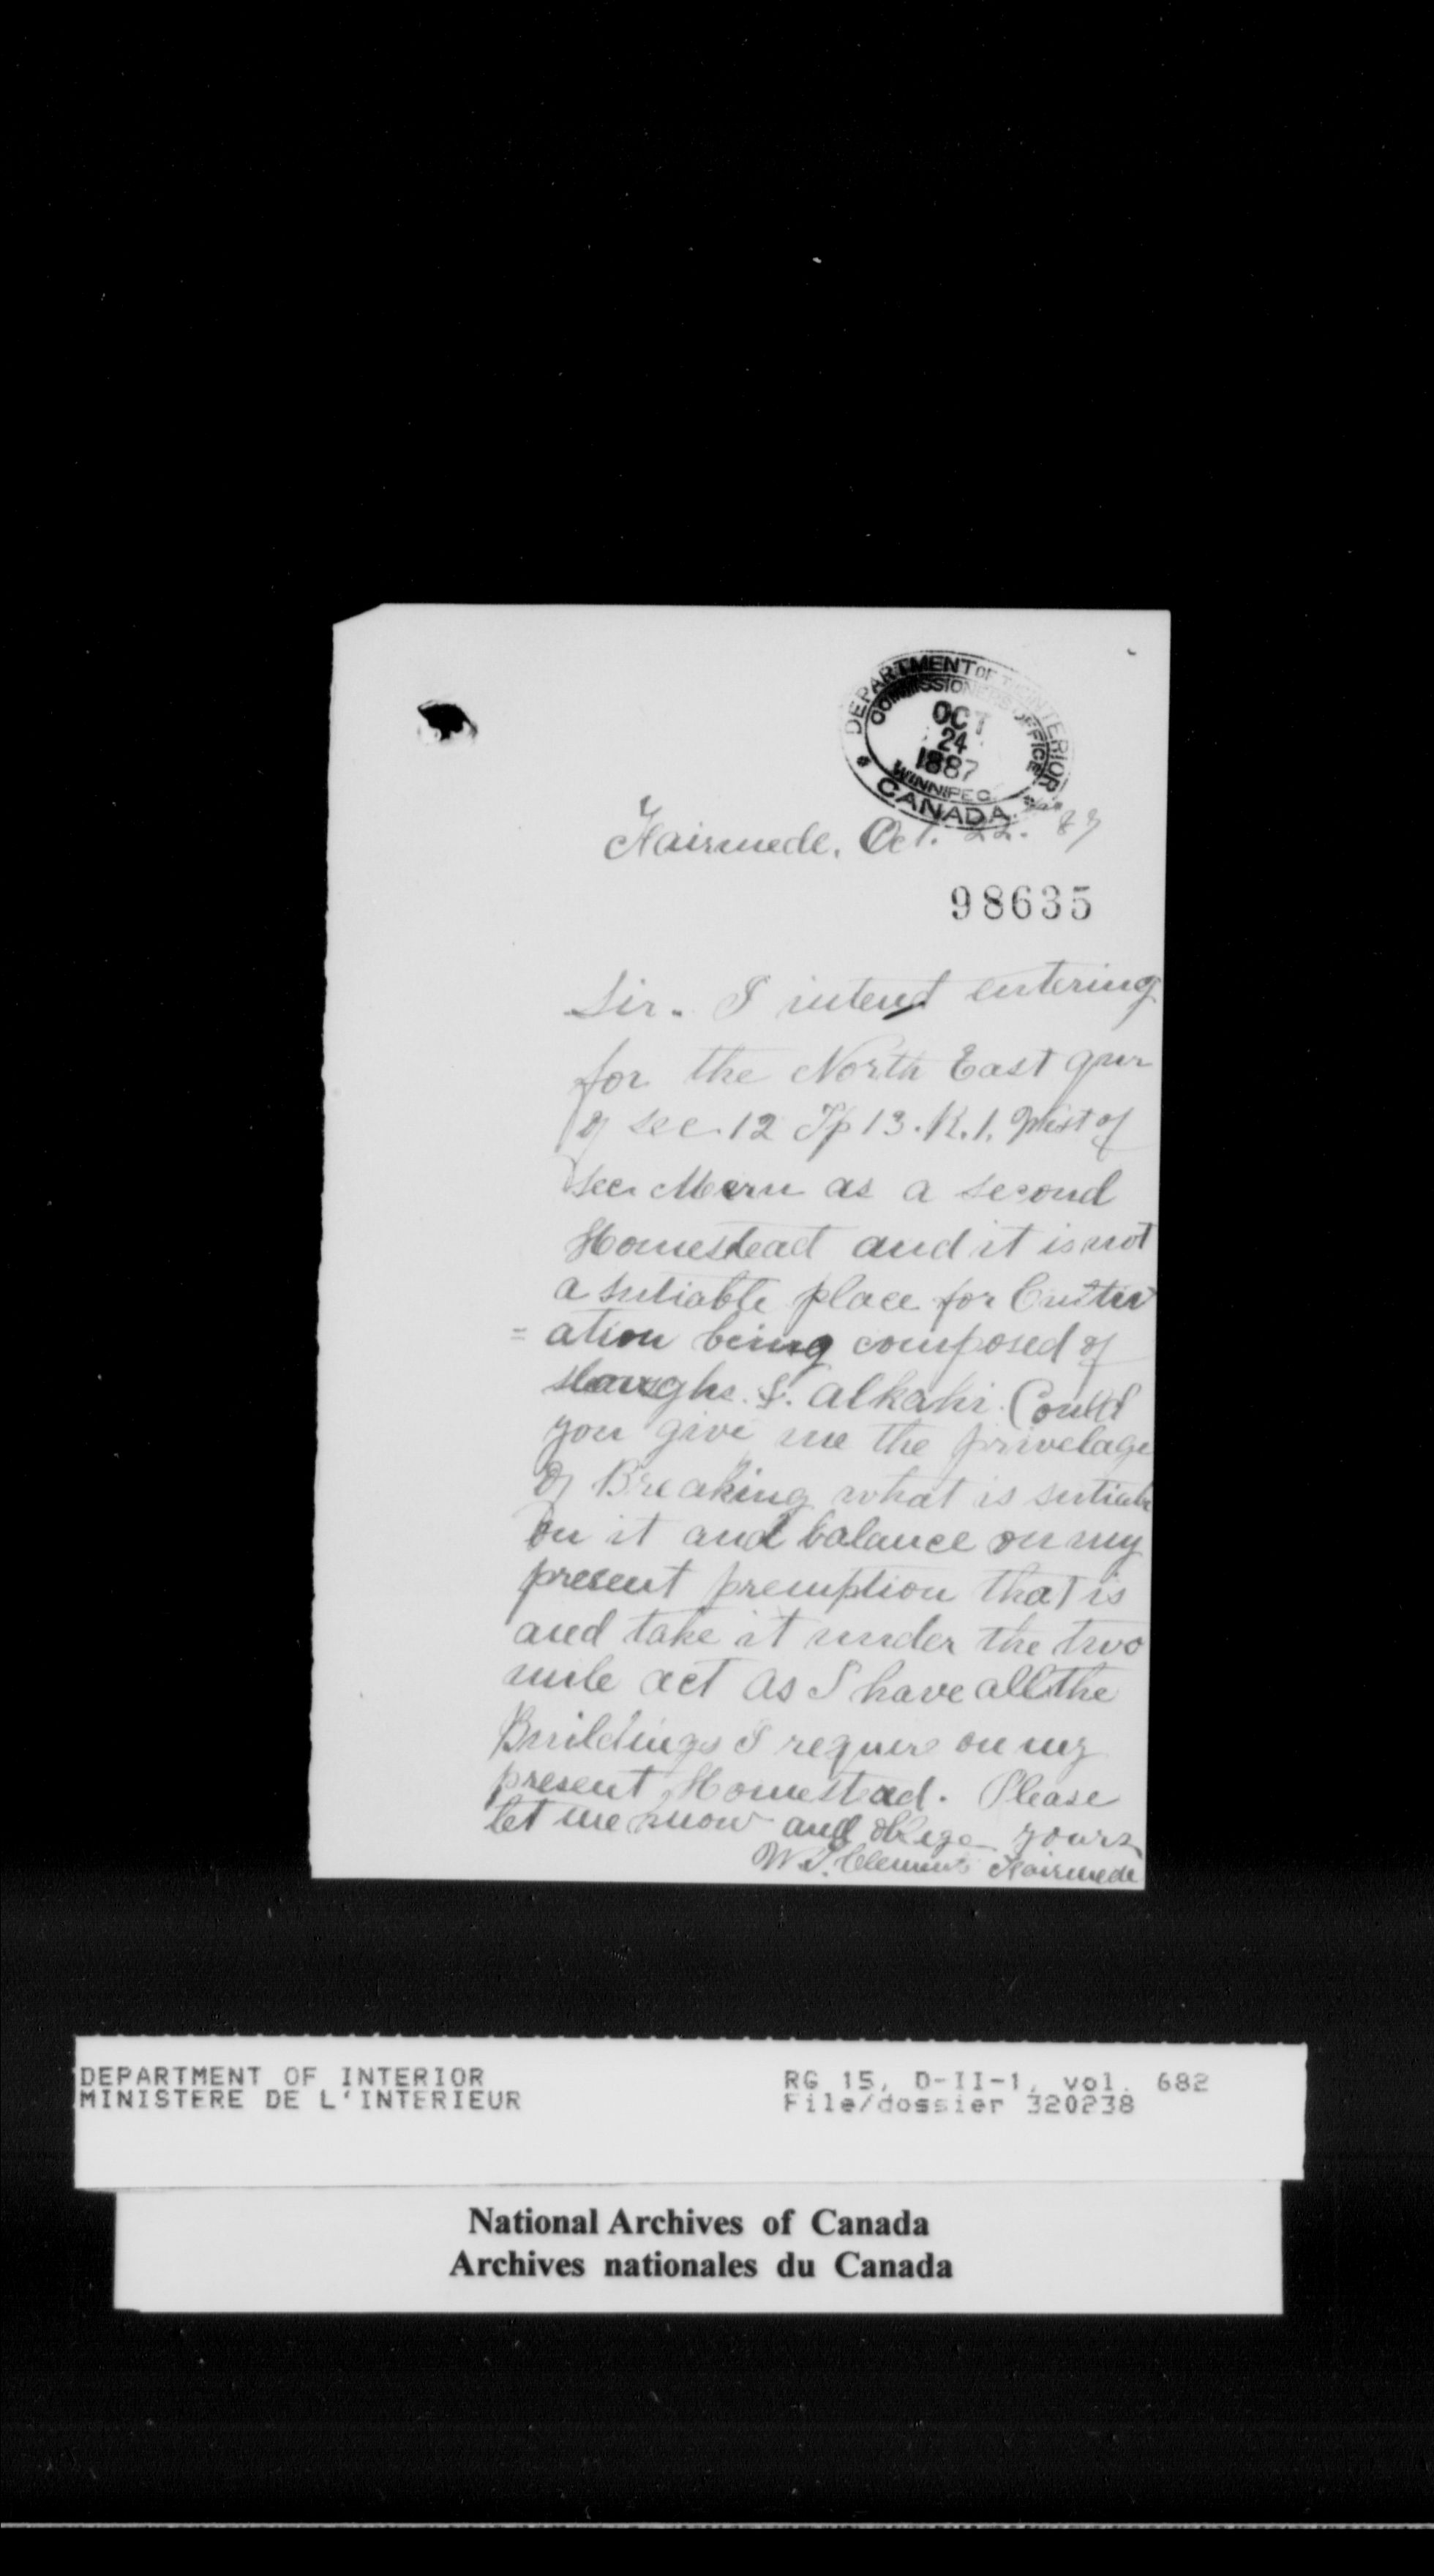 DEPARTMENT OF THE INTERIOR
COMMISSIONERS OFFICE
OCT
24
1887
WINNIPEG
CANADA
Fairmede. Oct. 22. 87
98635
Sir. I intend entering
for the North East qur
of sec. 12 Tp 13. R. 1. West of
sec Mern as a second
Homestead and it is not
a sutiable place for Cultiv
= ation being composed of
slaughs. & alkahi. Could
you give me the privelage
of Breaking what is sutiable
on it and balance on my
present premption that is
and take it under the two
mile act as I have all the
Buildings I require on my
present Homestead. Please
let me know and oblege yours
W. J. Clements Fairmede
DEPARTMENT OF INTERIOR
MINISTERE DE L'INTERIEUR
RG 15, D-II-1, vol. 682
File/dossier 320238
National Archives of Canada
Archives nationales du Canada